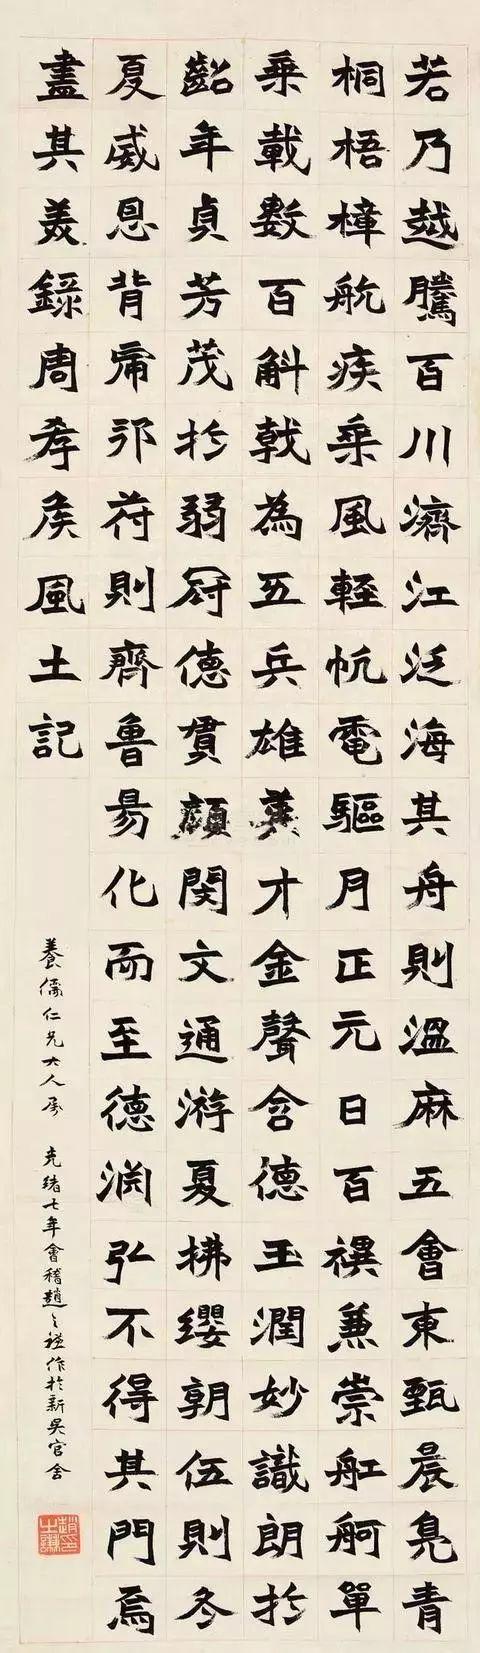 若乃越騰百川濟江泛海其舟則溫麻五會東甄晨鳧青
桐梧樟航疾乘風輕帆電驅月正元日百禩兼崇舡舸單
乘載數百斛戟為五兵雄英才金聲含德玉潤妙識朗於
齠年貞芳茂於弱冠德貫顏閔文通游夏拂纓朝伍則冬
夏威恩背苻則齊魯易化而至德渕弘不得其門焉
盡其美錄周孝矦風土記
養儒仁兄大人屬 光緒七年會稽趙之謙作於新吳官舍
趙之謙印